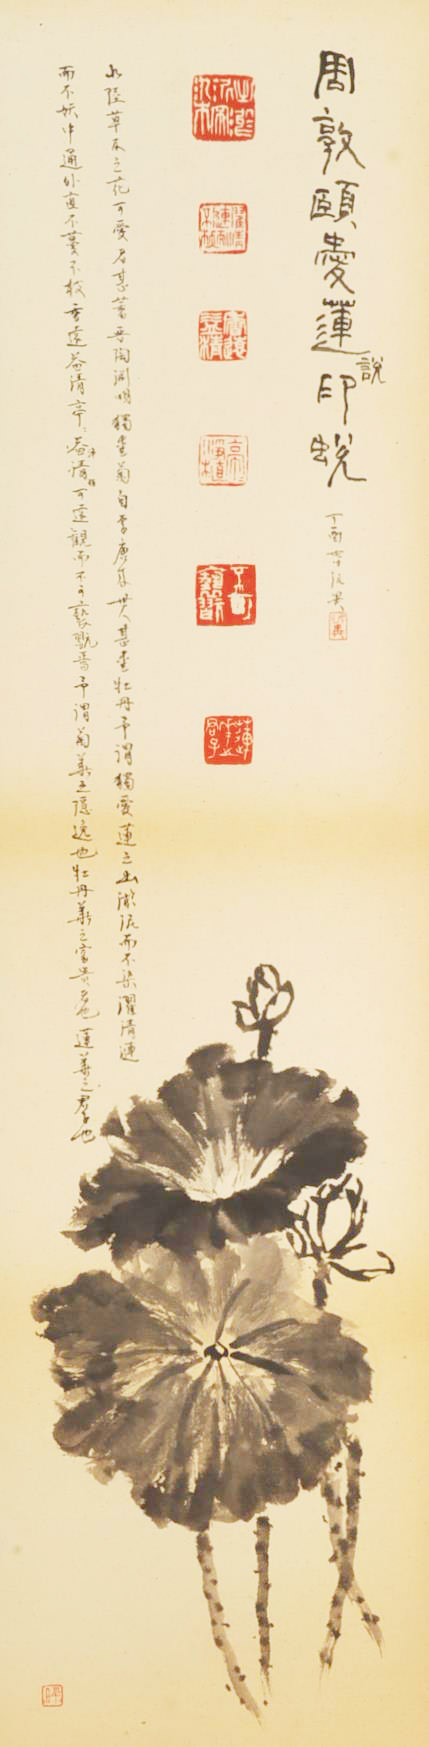 周敦頤愛蓮說印蛻
丁酉
香遠益清
亭亭淨植
水陸草木之花可愛者甚蕃晉陶淵明獨愛菊自李唐來世人甚愛牡丹予謂獨愛蓮之出淤泥而不染濯清漣
而不妖中通外直不蔓不枝香遠益清亭亭益清淨植可遠觀而不可褻翫焉予謂菊華之隱逸也牡丹華之富貴者也蓮華之君子也